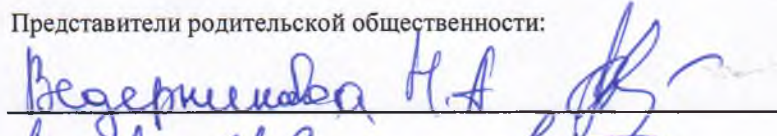 Представители родительской общественности:
Ведерникова Н.А